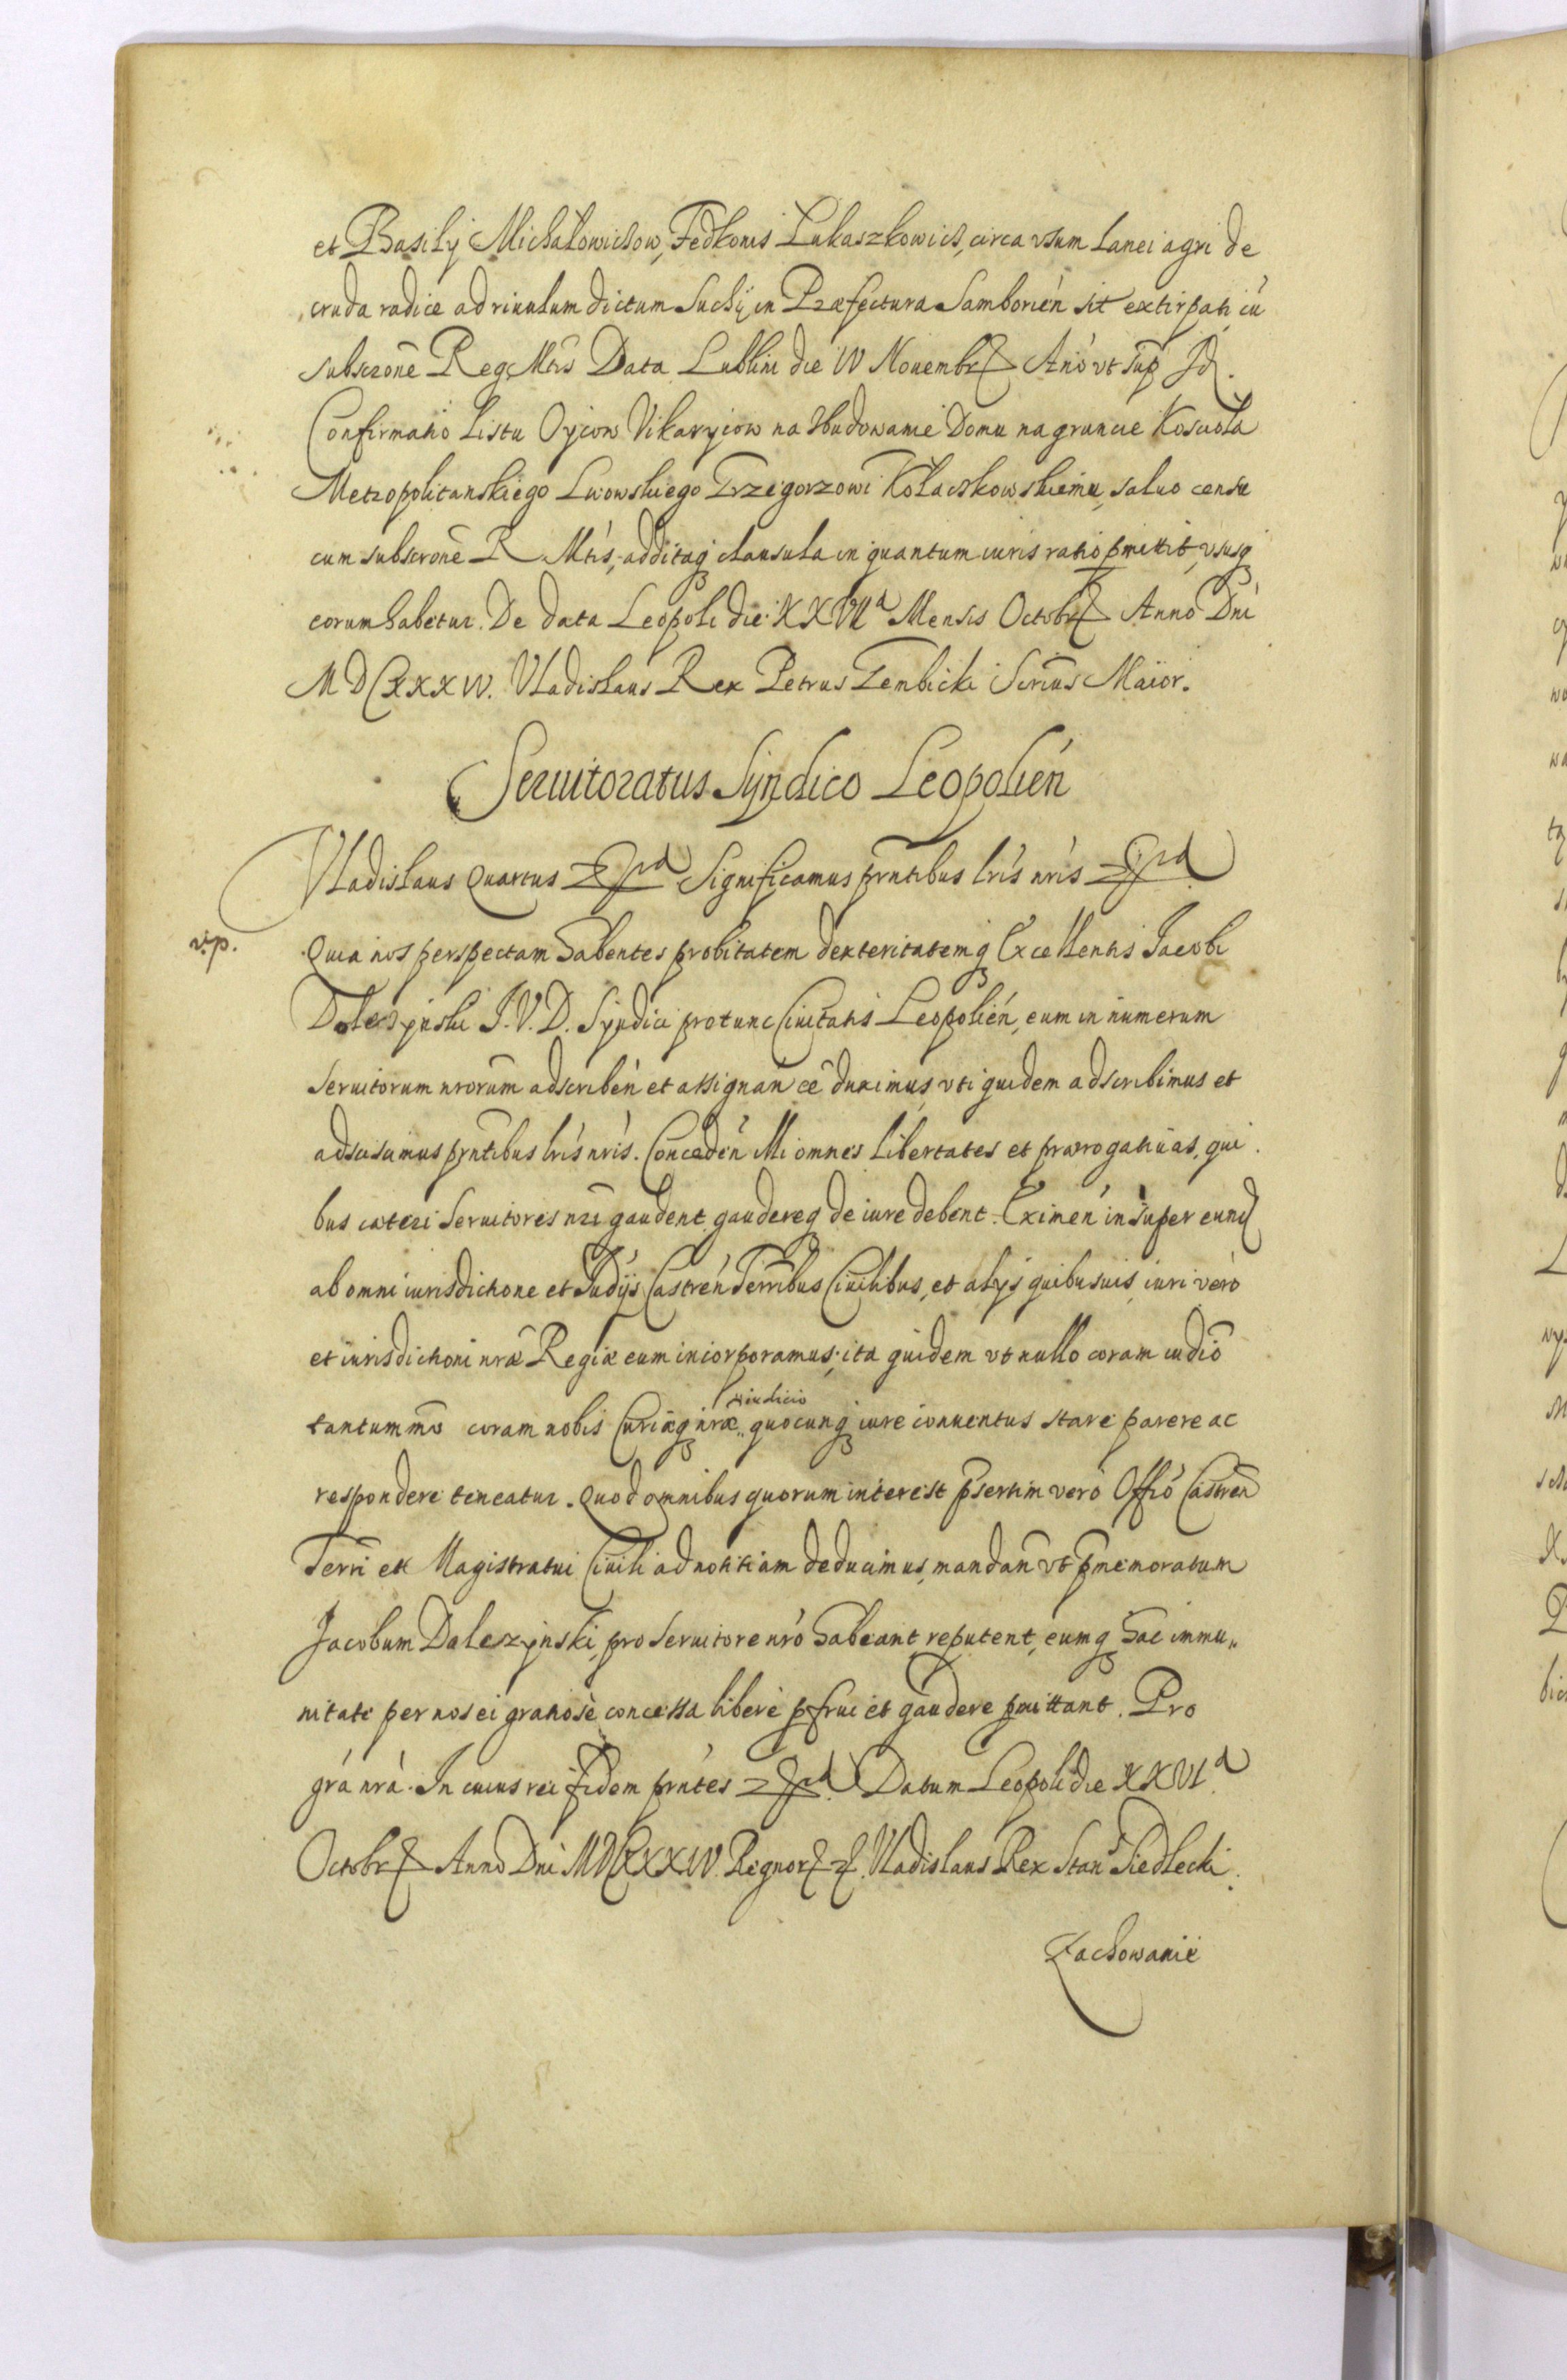 et Basilÿ Michałowiczow, Fedkonis Łukaszkowicz, circa vsum Lanei agri de
cruda radice ad riuulum dictum Suchÿ in Præfectura Samborień sit extirpati cū
subscrōne Reg. Mtis Data Lublini die IV Nouembr Anō vt sup Id.
Confirmatio Listu Oycow Vikaryiow na zbudowanie Domu na gruncie Koscioła
Metropolitanskiego Lwowskiego Grzegorzowi Kołaczkowskiemu, saluo censu
cum subscrone R Mtis, additaq clausula in quantum iuris ratio pmittit, vsusq
eorum habetur. De data Leopoli die XXVII a Mensis Octobr Anno Dni
MDCXXXIV. Vladislaus Rex Petrus Gembicki Scrius Maior.
Seruitoratus Syndico Leopolień
Vladislaus Quartus Significamus prntibus lris nris
v.p. Quia nos perspectam habentes probitatem dexteritatemq Excellentis Jacobi
Daleszynski J. V. D. Syndici pro tunc Ciuitatis Leopolień, eum in numerum
seruitorum nrorum adscribeń et assignań cē duximus, vti quidem adscribimus et
adsciscimus prntibus lris nris. Concedeń illi omnes libertates et prærogatiuas, qui
bus cæteri seruitores nri gaudent gaudereq de iure debent. Eximeń insuper eund
ab omni iurisdictione et Iudÿs Castreń Terribus Ciuilibus, et alÿs quibusuis, iuri vero
et iurisdictioni nræ Regiæ eum incorporamus; ita quidem vt nullo coram iudio
tantummo coram nobis Curiæq nræ iudicio quocunq iure conuentus stare parere ac
respondere teneatur. Quod omnibus quorum interest psertim vero Offio Castreń
Terri et Magistratui Ciuili ad notitiam deducimus, mandań vt pmemoratum
Jacobum Daleszynski, pro seruitore nro habeant, reputent, eumq hac immu„
nitate per nos ei gratiose concessa libere pfrui et gaudere pmittant. Pro
gra nra. In cuius rei fidem prntes Datum Leopoli die XXVI a
Octobr Anno Dni MDCXXXIV. Regnor Vladislaus Rex Stan Siedlecki.
Zachowanie